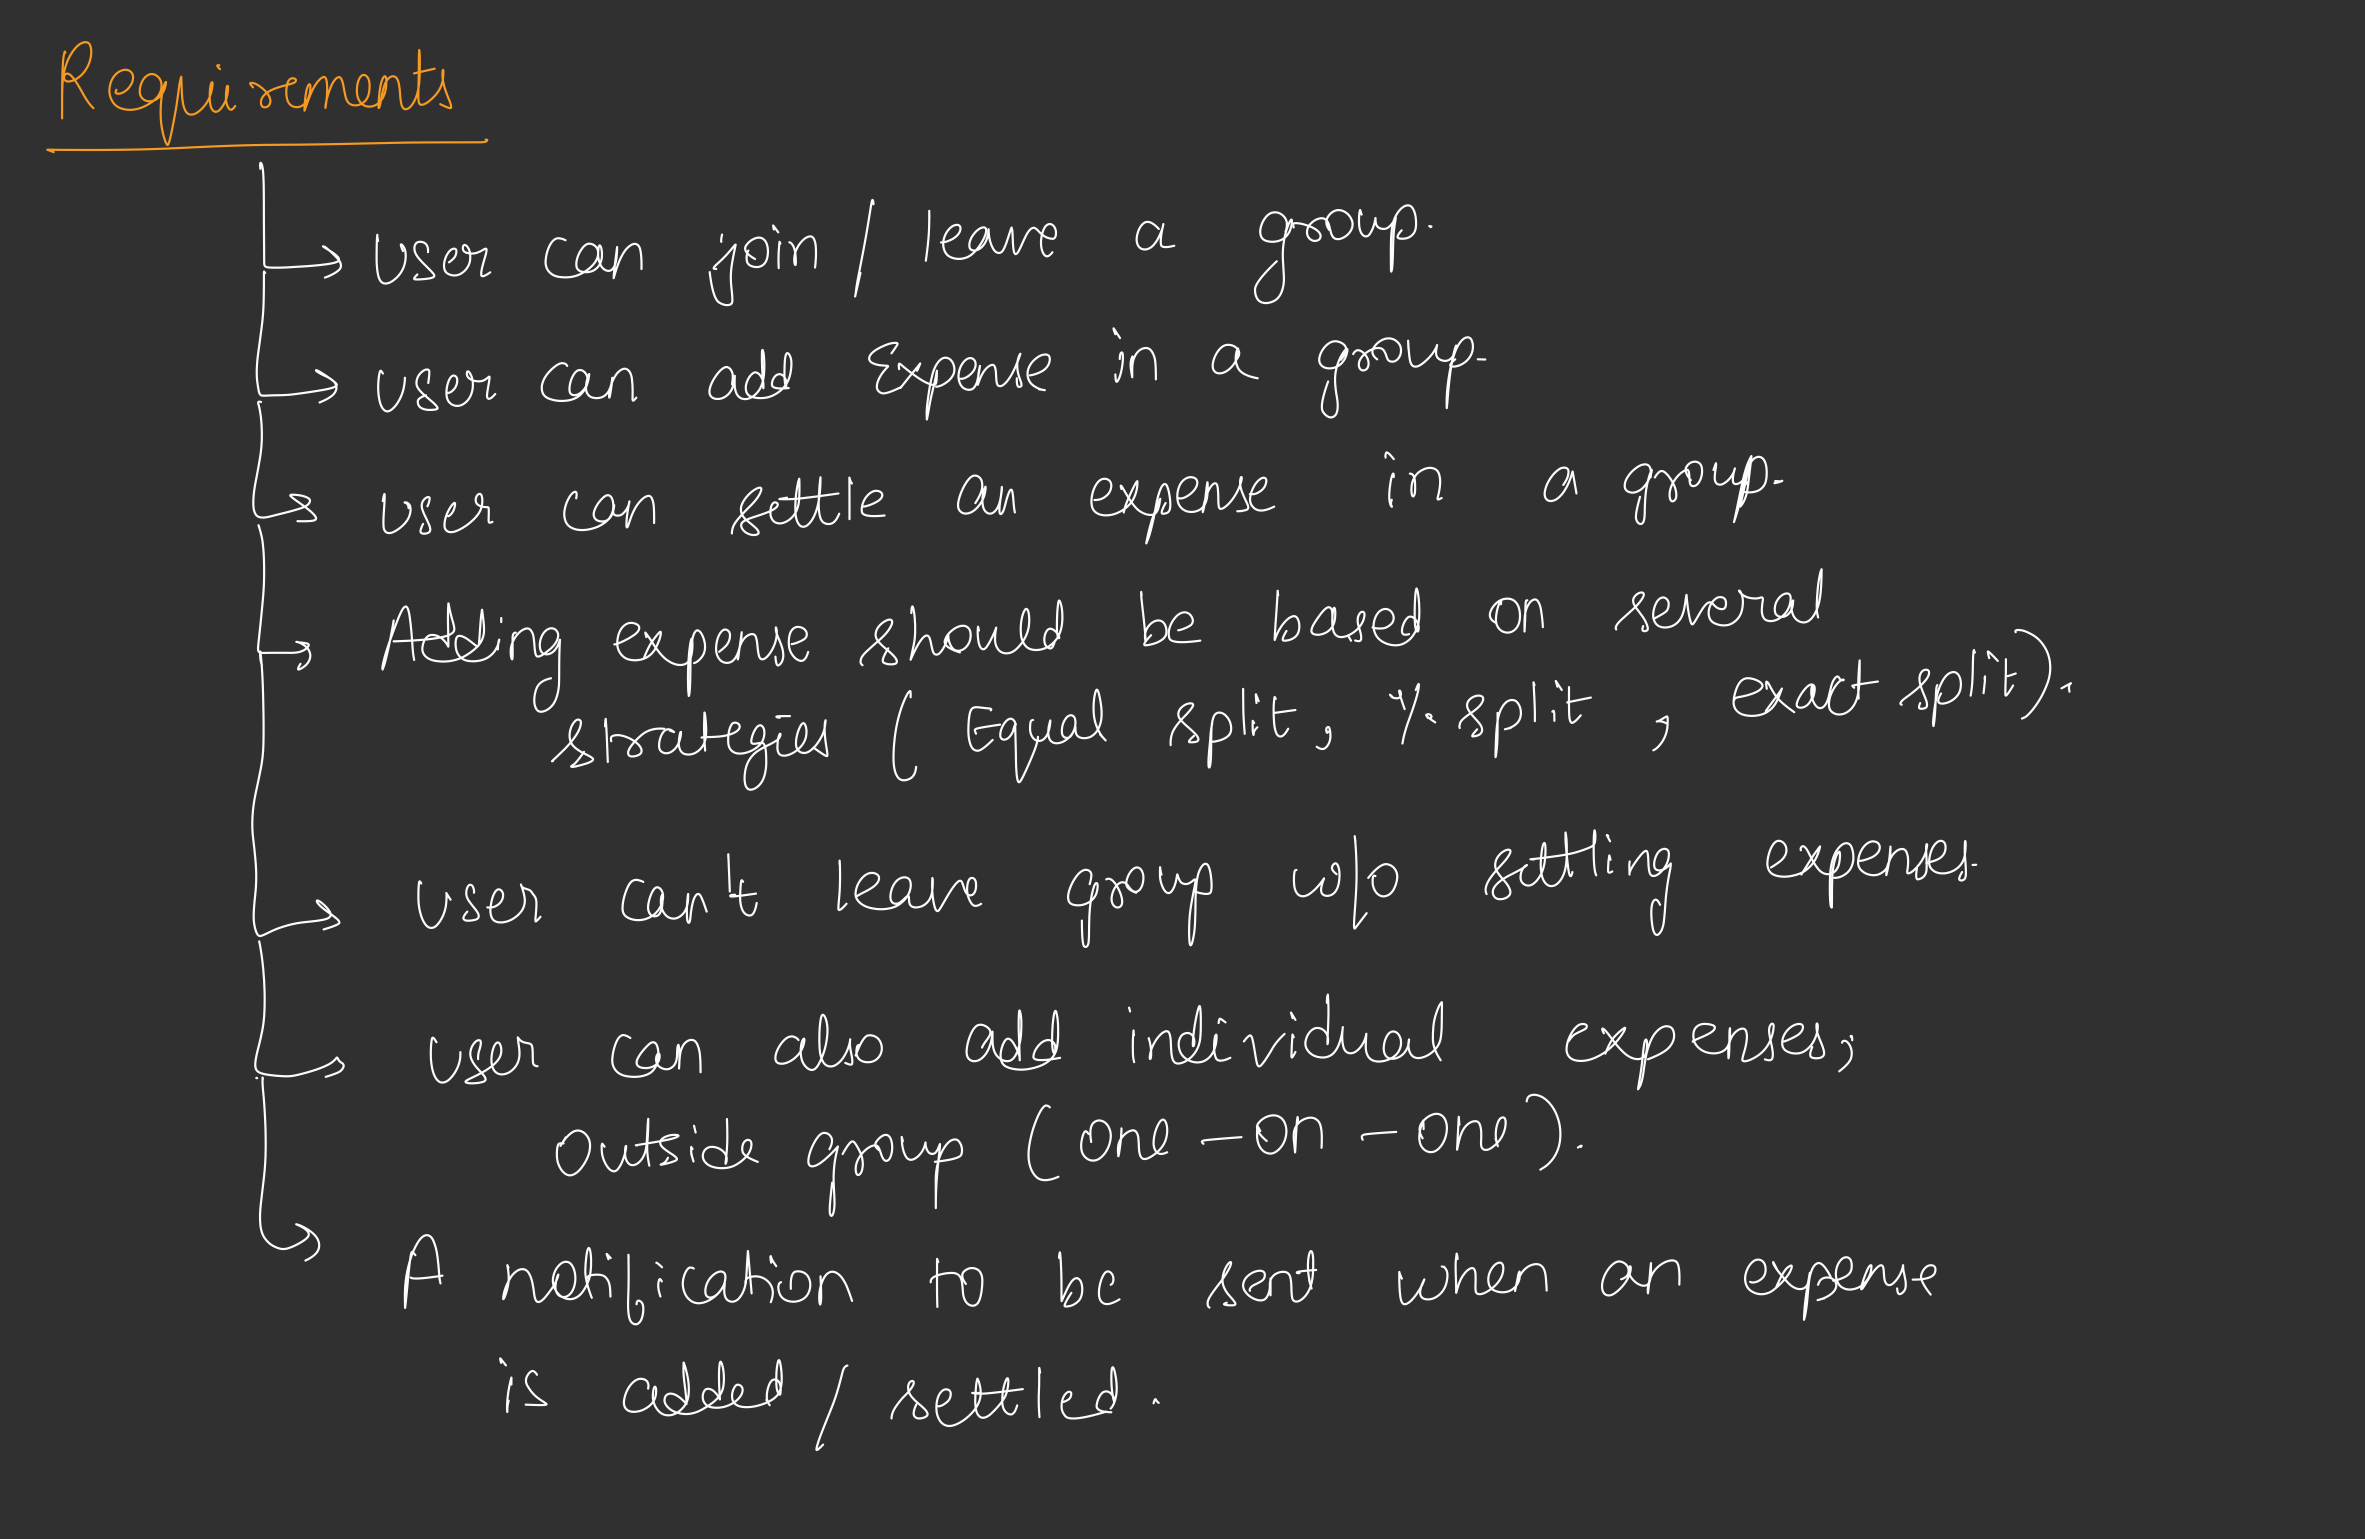 Requirements
User can join / leave a group.
User can add Expense in a group.
User can settle an expense in a group.
Adding expense should be based on several
strategies ( Equal split, % split, exact split).
User can't leave group w/o settling expenses.
User can also add individual expenses,
outside group (one-on-one).
A notification to be sent when an expense
is added / settled.